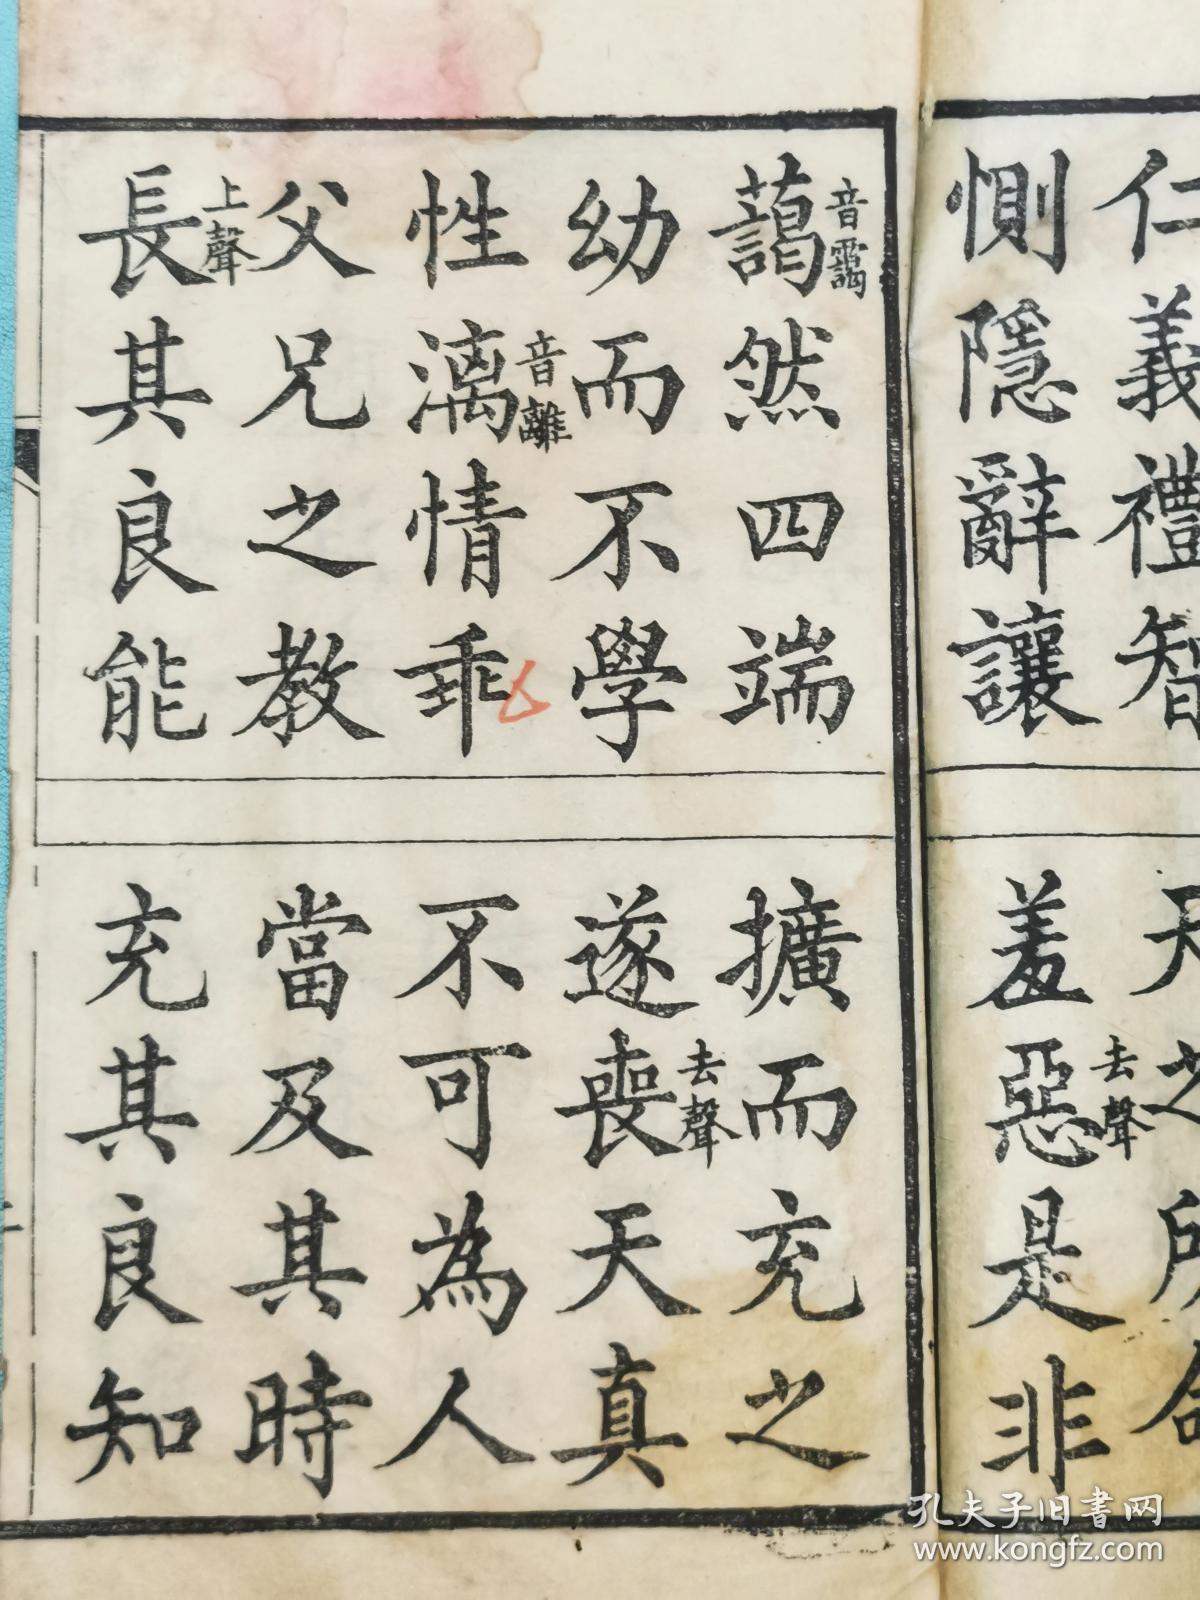 仁義禮智
天之所命
惻隱辭讓
羞惡去聲是非
藹音靄然四端
擴而充之
幼而不學
遂喪去聲天真
性漓音離情乖
不可為人
父兄之教
當及其時
長上聲其良能
充其良知
孔夫子旧书网
www.kongfz.com